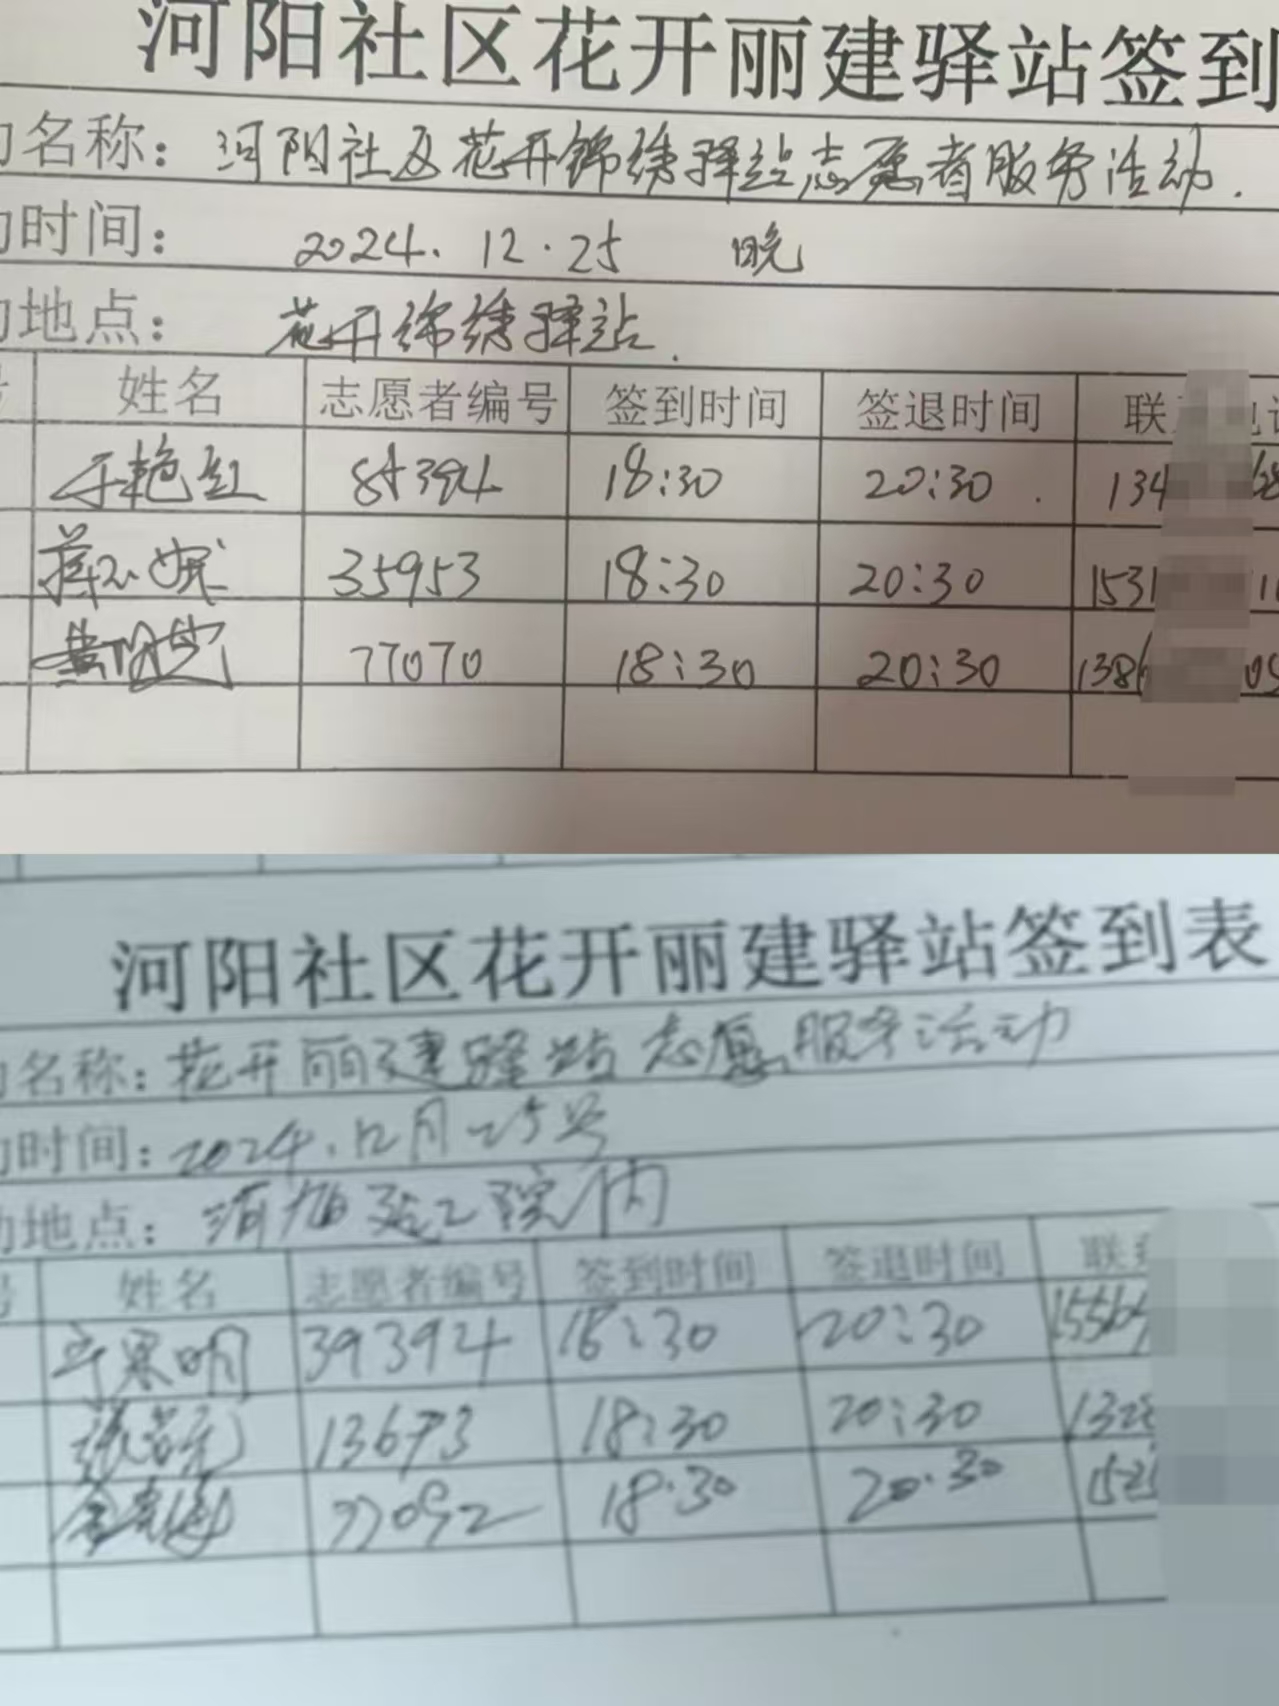 河阳社区花开丽建驿站签到
名称：河阳社区花开锦绣驿站志愿者服务活动.
时间： 2024.12.25 晚
地点： 花开锦绣驿站.
姓名 志愿者编号 签到时间 签退时间 联
于艳红 85394 18:30 20:30 134
35953 18:30 20:30 1531
77070 18:30 20:30 138
河阳社区花开丽建驿站签到表
名称：花开丽建驿站志愿服务活动
时间：2024.12月25号
地点：河阳 院内
姓名 志愿者编号 签到时间 签退时间 联
39394 18:30 20:30
13673 18:30 20:30 132
77092 18:30 20:30